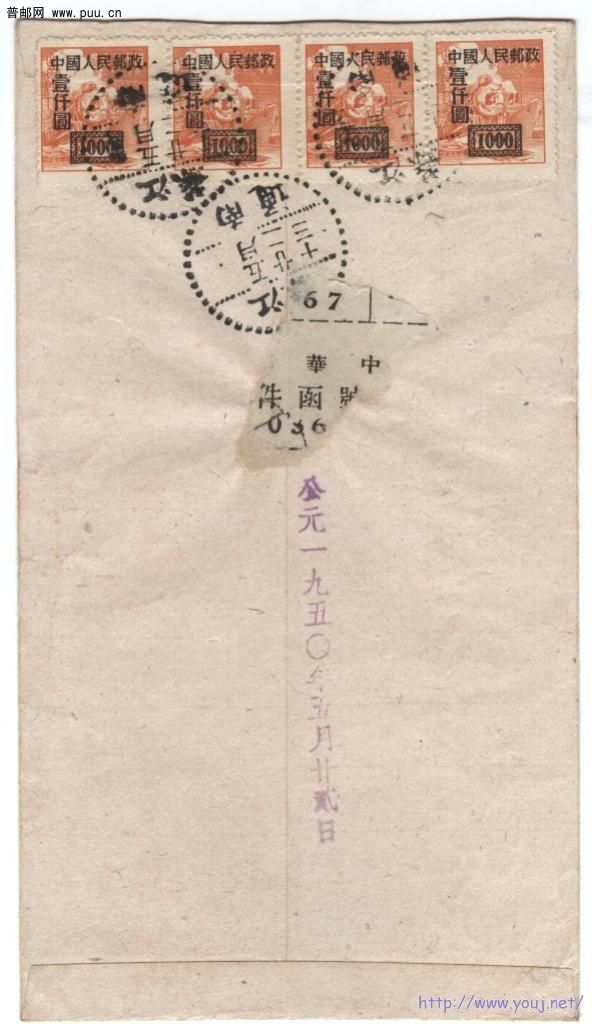 普邮网 www.puu.cn
中國人民郵政
壹仟圓
1000
中國人民郵政
壹仟圓
1000
中國人民郵政
壹仟圓
1000
中國人民郵政
壹仟圓
1000
南通
十三
廿二
五月
江
67
中華
函
公元一九五〇年五月廿貳日
http://www.youj.net/